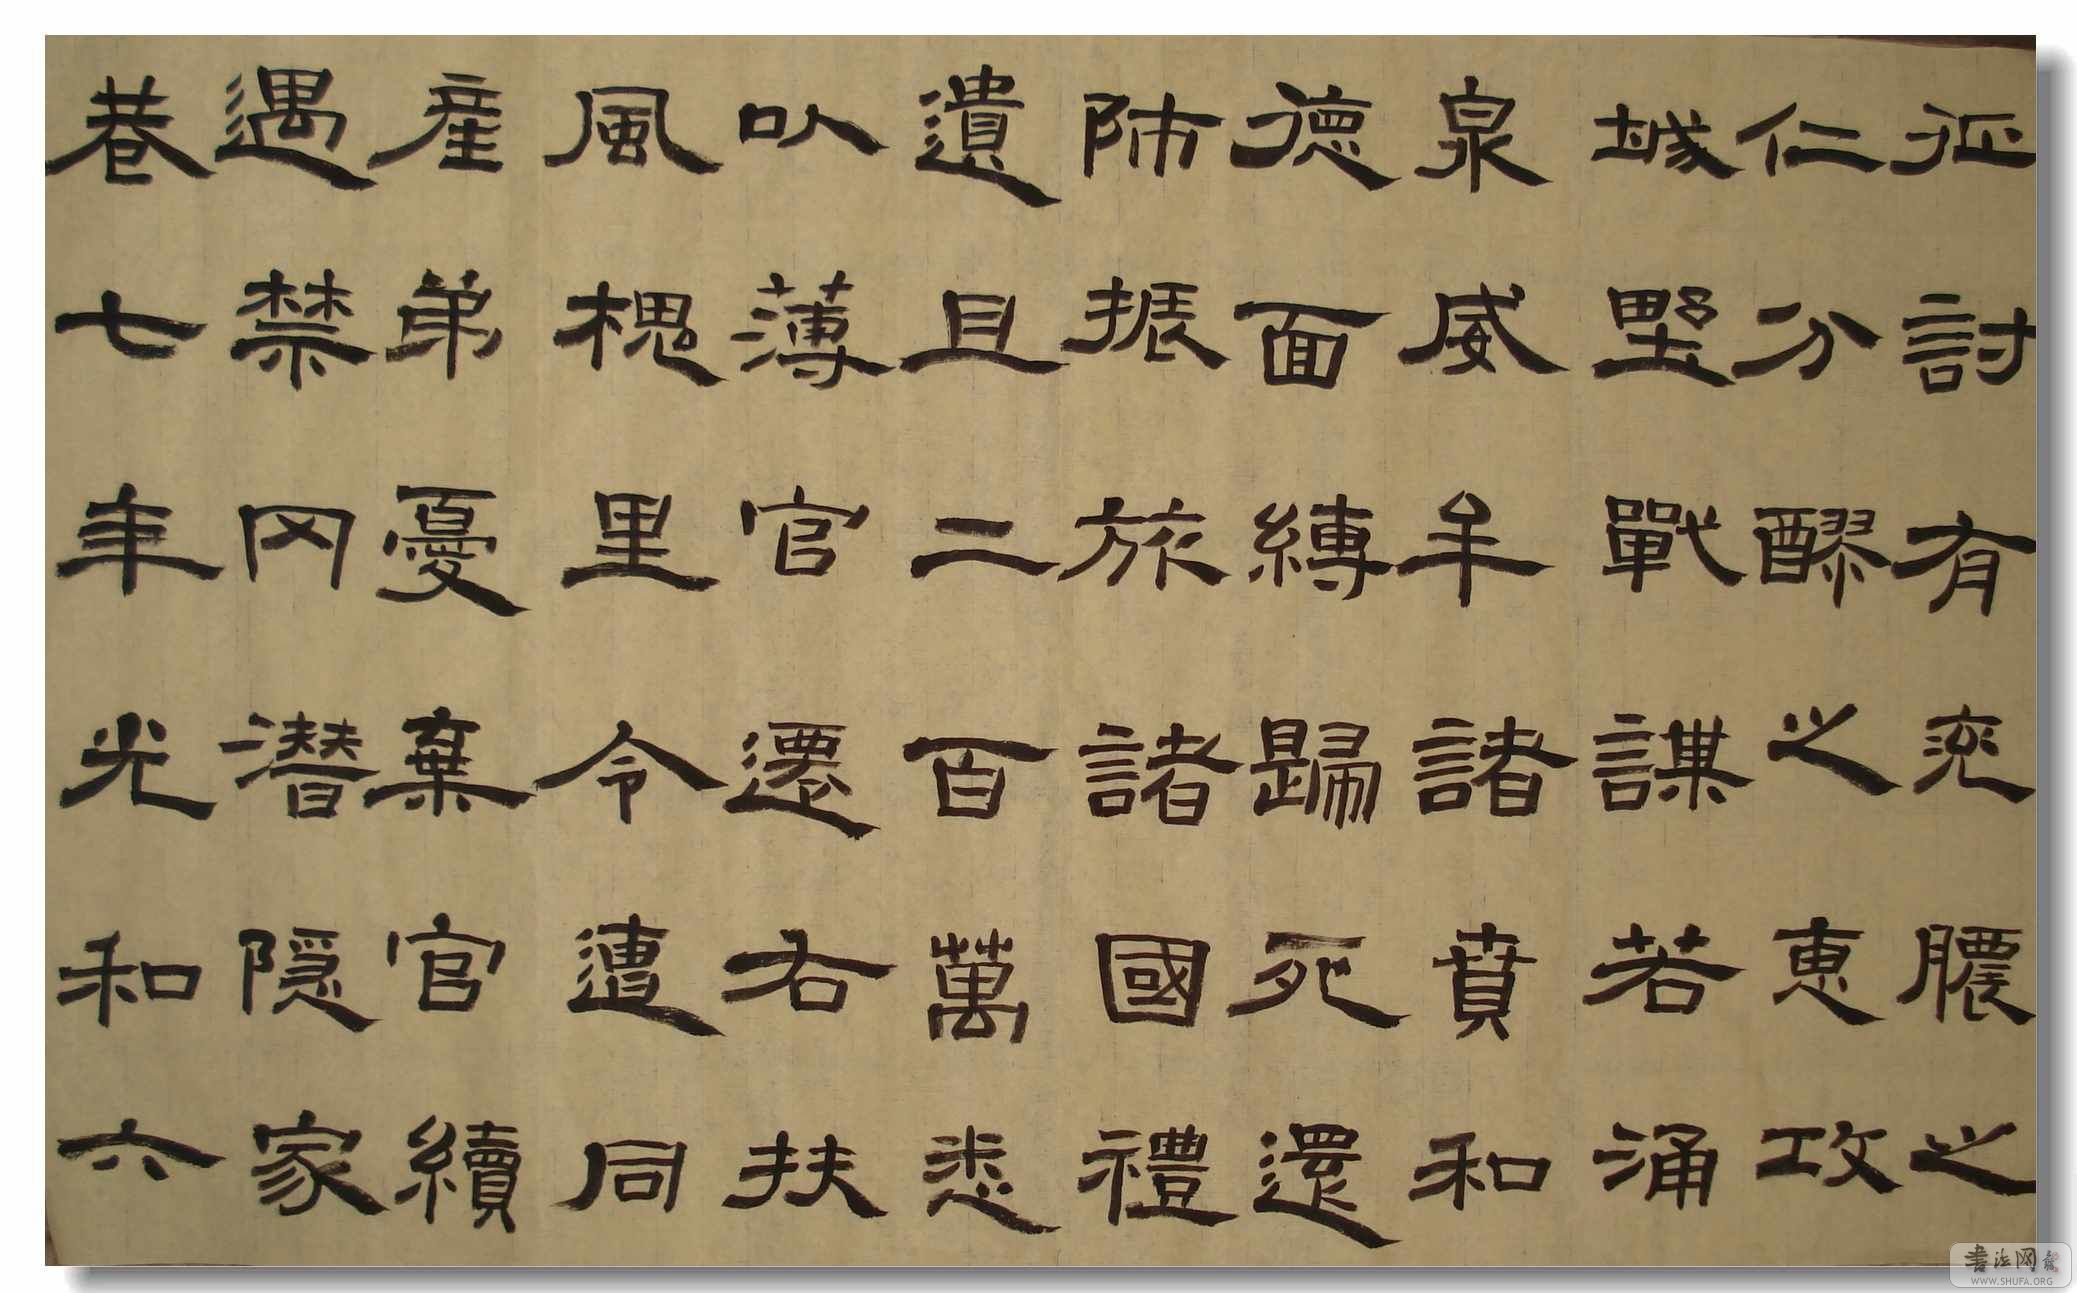 征討有兗膿之
仁分醪之惠攻
城野戰謀若涌
泉威牟諸賁和
德面縛歸死還
師振旅諸國禮
遺且二百萬悉
以薄官遷右扶
風槐里令遭同
產弟憂棄官續
遇禁冈潛隱家
巷七年光和六
書法网
WWW.SHUFA.ORG